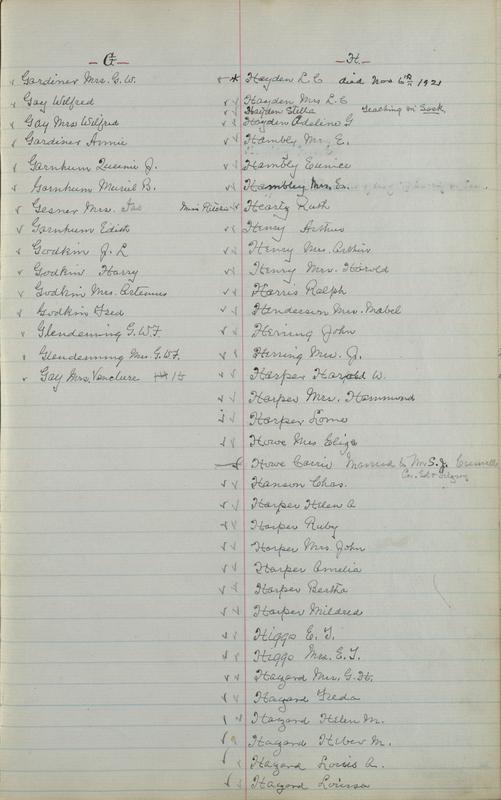 G.
Gardiner Mrs. G. W.
Gay Wilfred
Gay Mrs Wilfred
Gardiner Annie
Garnhum Queenie J.
Garnhum Muriel B.
Gesner Mrs.
Garnhum Edith
Godkin J. L
Godkin Harry
Godkin Mrs. Artemus
Godkin Fred
Glendenning G. W. F.
Glendenning Mrs. G. W. F.
Gay Mrs. Venclure
H.
Hayden L. C died Nov 6th 1921
Hayden Mrs L. C
Hayden Stella teaching in Sask
Hayden Adeline G
Hambly Mr. E.
Hambly Eunice
Hambley Mrs. E.
Hearty Ruth
Henry Arthur
Henry Mrs. Arthur
Henry Mrs. Harold
Harris Ralph
Henderson Mrs. Mabel
Herring John
Herring Mrs. J.
Harper Harold W.
Harper Mrs. Hammond
Harper Lorne
Howe Mrs Eliza
Howe Carrie Married to Mr. S. J.
Hanson Chas.
Harper Helen A
Harper Ruby
Harper Mrs. John
Harper Amelia
Harper Bertha
Harper Mildred
Higgs E. T.
Higgs Mrs. E. T.
Hazard Mrs. G. H.
Hazard Freda
Hazard Helen M.
Hazard Heber M.
Hazard Louis A.
Hazard Louissa